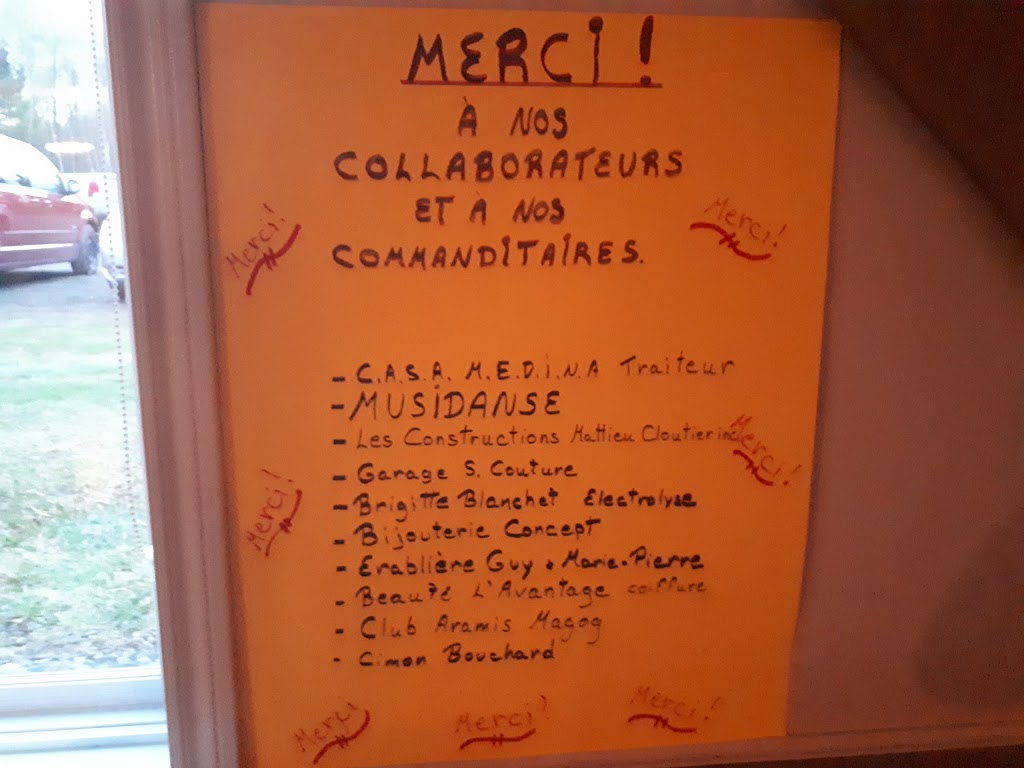 MERCi !
À NOS
COLLABORATEURS
ET À NOS
COMMANDITAIRES.
Merci!
Merci!
- C.A.S.A. M.E.D.I.N.A Traiteur
- MUSIDANSE
- Les Constructions Mathieu Cloutier inc
Merci!
- Garage S. Couture
- Brigitte Blanchet Electrolyse
Merci!
- Bijouterie Concept
- Erablière Guy & Marie-Pierre
- Beauté L'Avantage coiffure
- Club Aramis Magog
- Cimon Bouchard
Merci
Merci!
Merci!